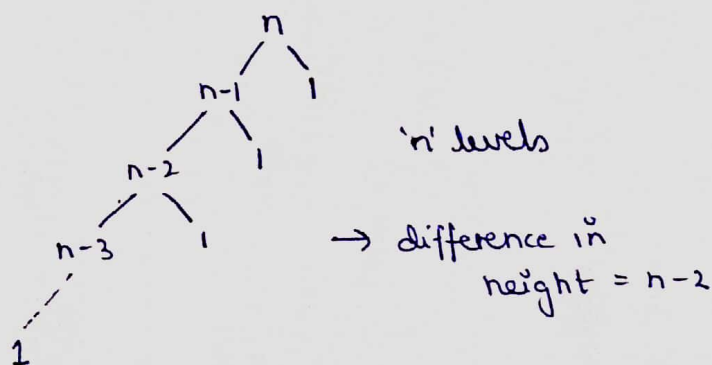 n
n-1 1
n-2 1
'n' levels
n-3 1
→ difference in
height = n-2
1